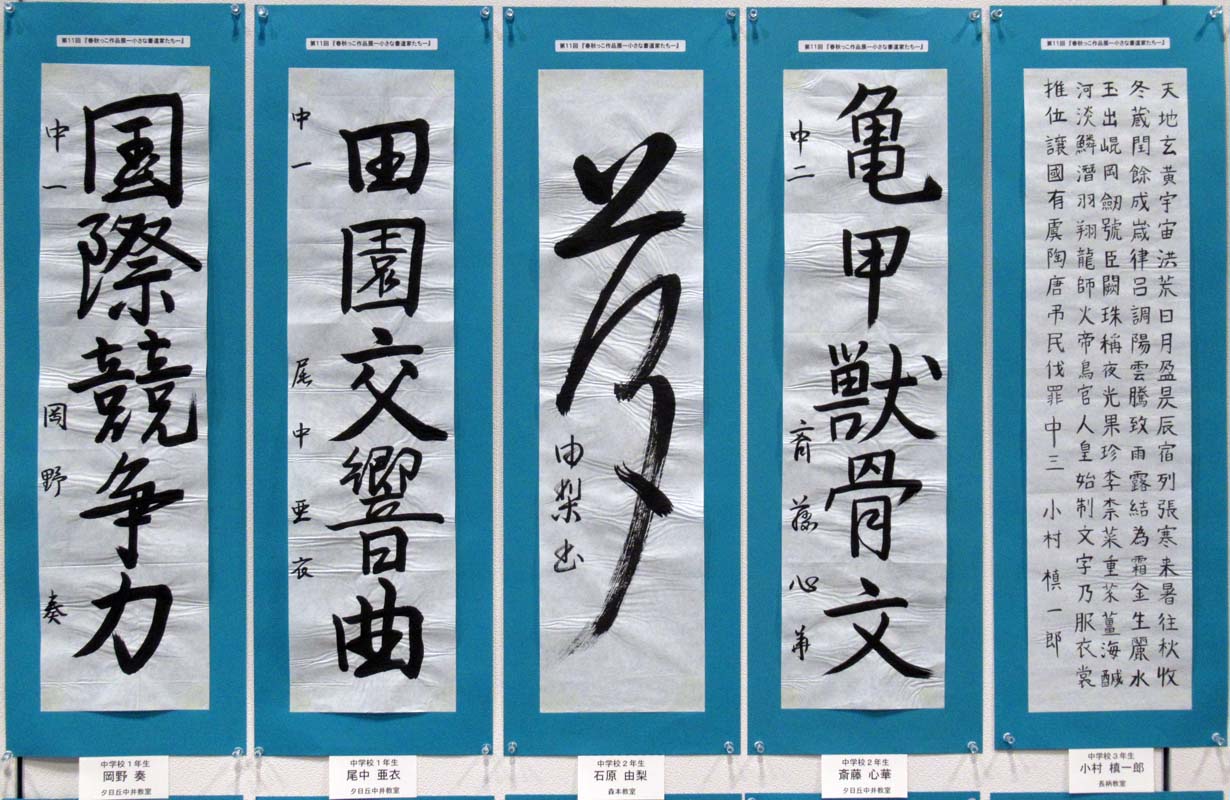 第11回『春秋っこ作品展―小さな書道家たち―』
国際競争力
中一 岡野 奏
中学校1年生
岡野 奏
夕日丘中井教室
第11回『春秋っこ作品展―小さな書道家たち―』
田園交響曲
中一 尾中亜衣
中学校1年生
尾中 亜衣
夕日丘中井教室
第11回『春秋っこ作品展―小さな書道家たち―』
由梨書
中学校2年生
石原 由梨
森本教室
第11回『春秋っこ作品展―小さな書道家たち―』
亀甲獣骨文
中二 斎藤心華
中学校2年生
斎藤 心華
夕日丘中井教室
第11回『春秋っこ作品展―小さな書道家たち―』
天地玄黄宇宙洪荒日月盈昃辰宿列張寒来暑往秋收
冬蔵閏餘成歳律呂調陽雲騰致雨露結為霜金生麗水
玉出崐岡劔號臣闕珠稱夜光果珍李柰菜重芥薑海鹹
河淡鱗潛羽翔龍師火帝鳥官人皇始制文字乃服衣裳
推位讓國有虞陶唐吊民伐罪 中三 小村 槙一郎
中学校3年生
小村 槙一郎
長柄教室